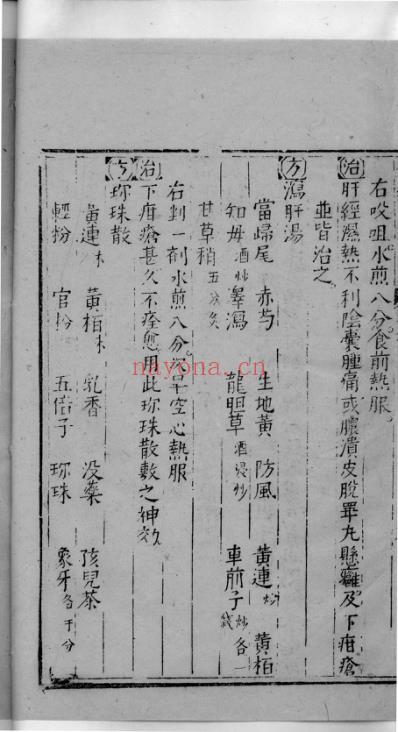 右㕮咀水煎八分食前熱服
治肝經濕熱不利陰囊腫痛或膿潰皮脫睪丸懸癰及下疳瘡
並皆治之
方瀉肝湯
當歸尾 赤芍 生地黃 防風 黃連炒 黃栢
知母酒炒 澤瀉 龍胆草酒浸炒 車前子炒各一錢
甘草稍五分炙
右剉一劑水煎八分 空心熱服
治下疳瘡甚久不痊愈用此珎珠散敷之神效
方珎珠散
黃連末 黃栢末 乳香 没藥 孩兒茶
輕粉 官粉 五倍子 珎珠 象牙各 分
nayona.cn